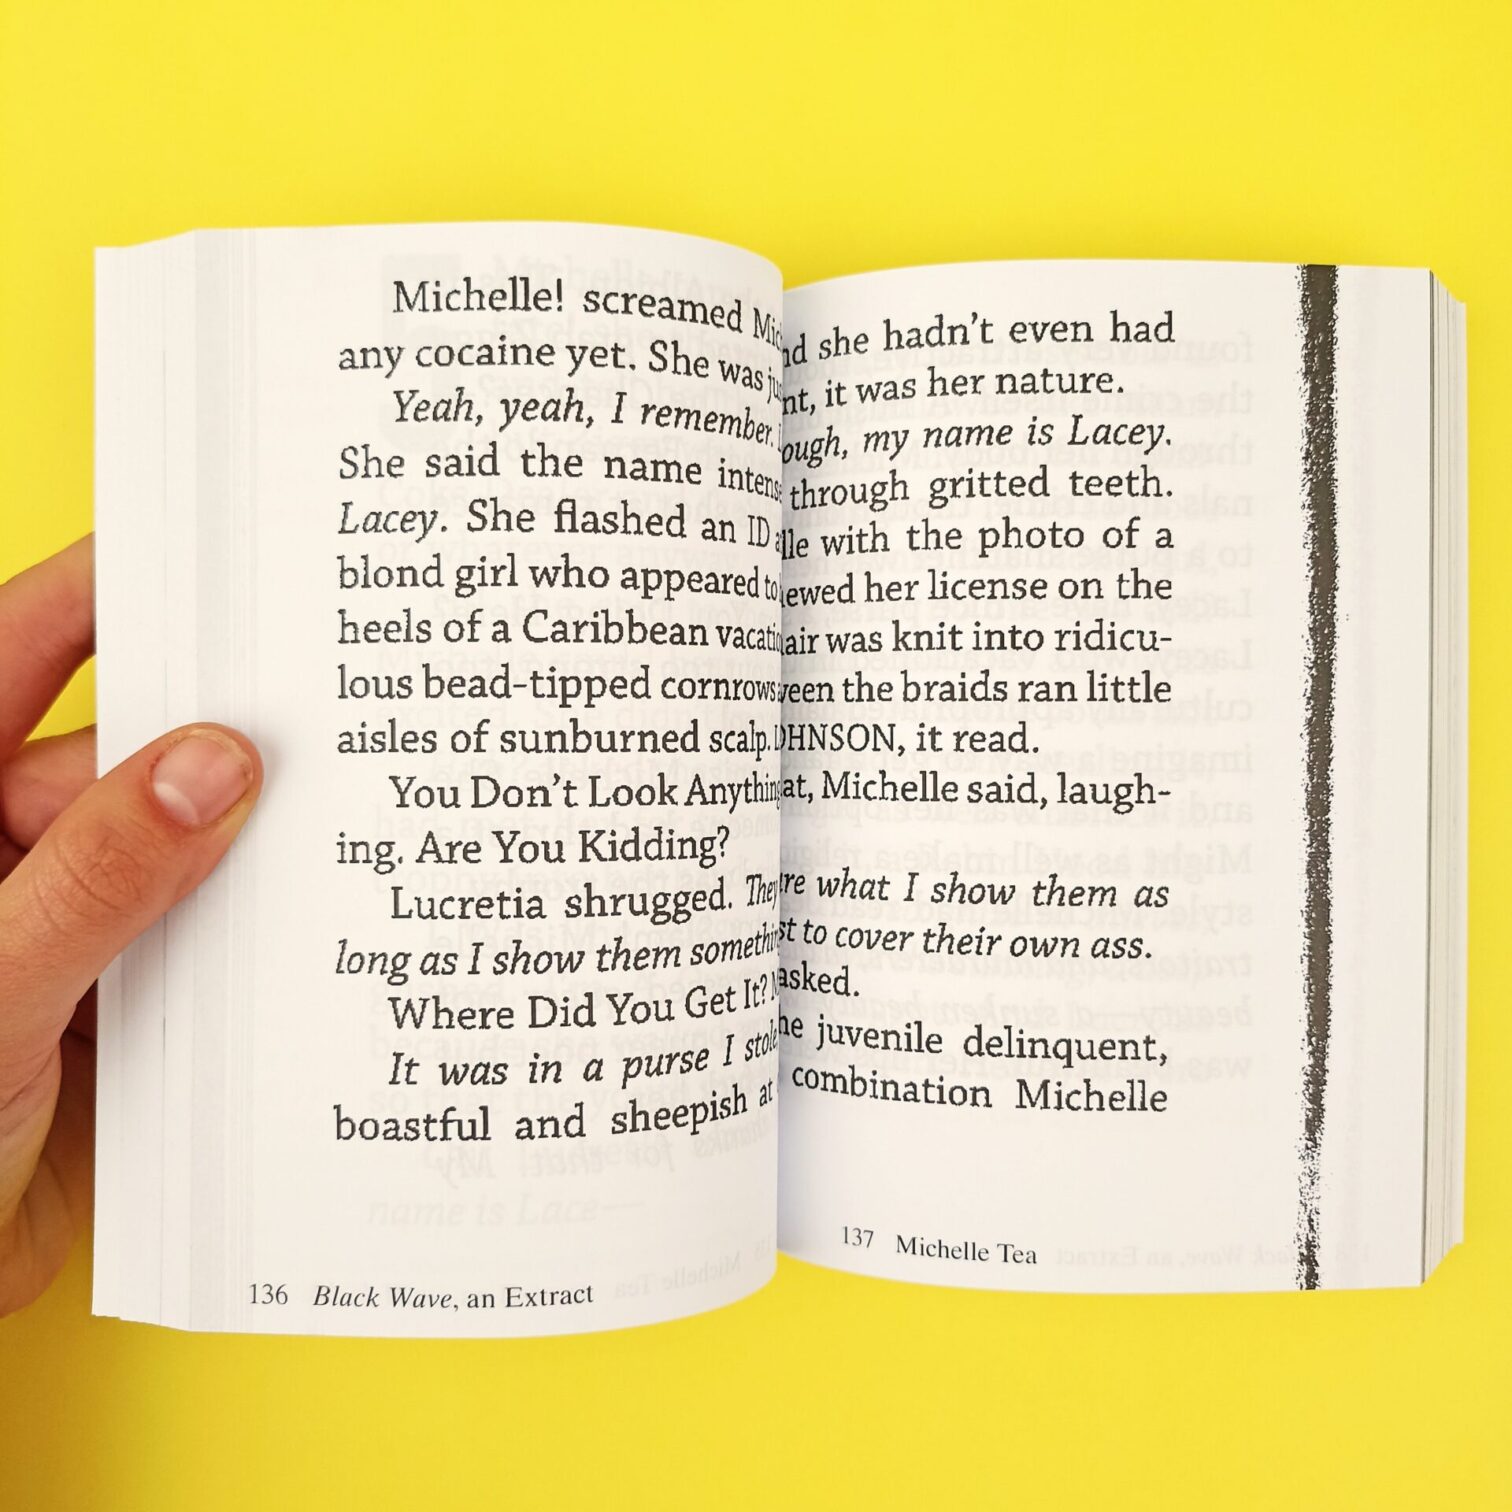 Michelle! screamed she hadn't even had
any cocaine yet. She was it was her nature.
Yeah, yeah, I remember. my name is Lacey.
She said the name through gritted teeth.
Lacey. She flashed an ID with the photo of a
blond girl who appeared to her license on the
heels of a Caribbean was knit into ridicu-
lous bead-tipped cornrows the braids ran little
aisles of sunburned scalp. it read.
You Don't Look Michelle said, laugh-
ing. Are You Kidding?
Lucretia shrugged. They what I show them as
long as I show them to cover their own ass.
Where Did You Get It? asked.
It was in a purse I juvenile delinquent,
boastful and sheepish at combination Michelle
136 Black Wave, an Extract
137 Michelle Tea